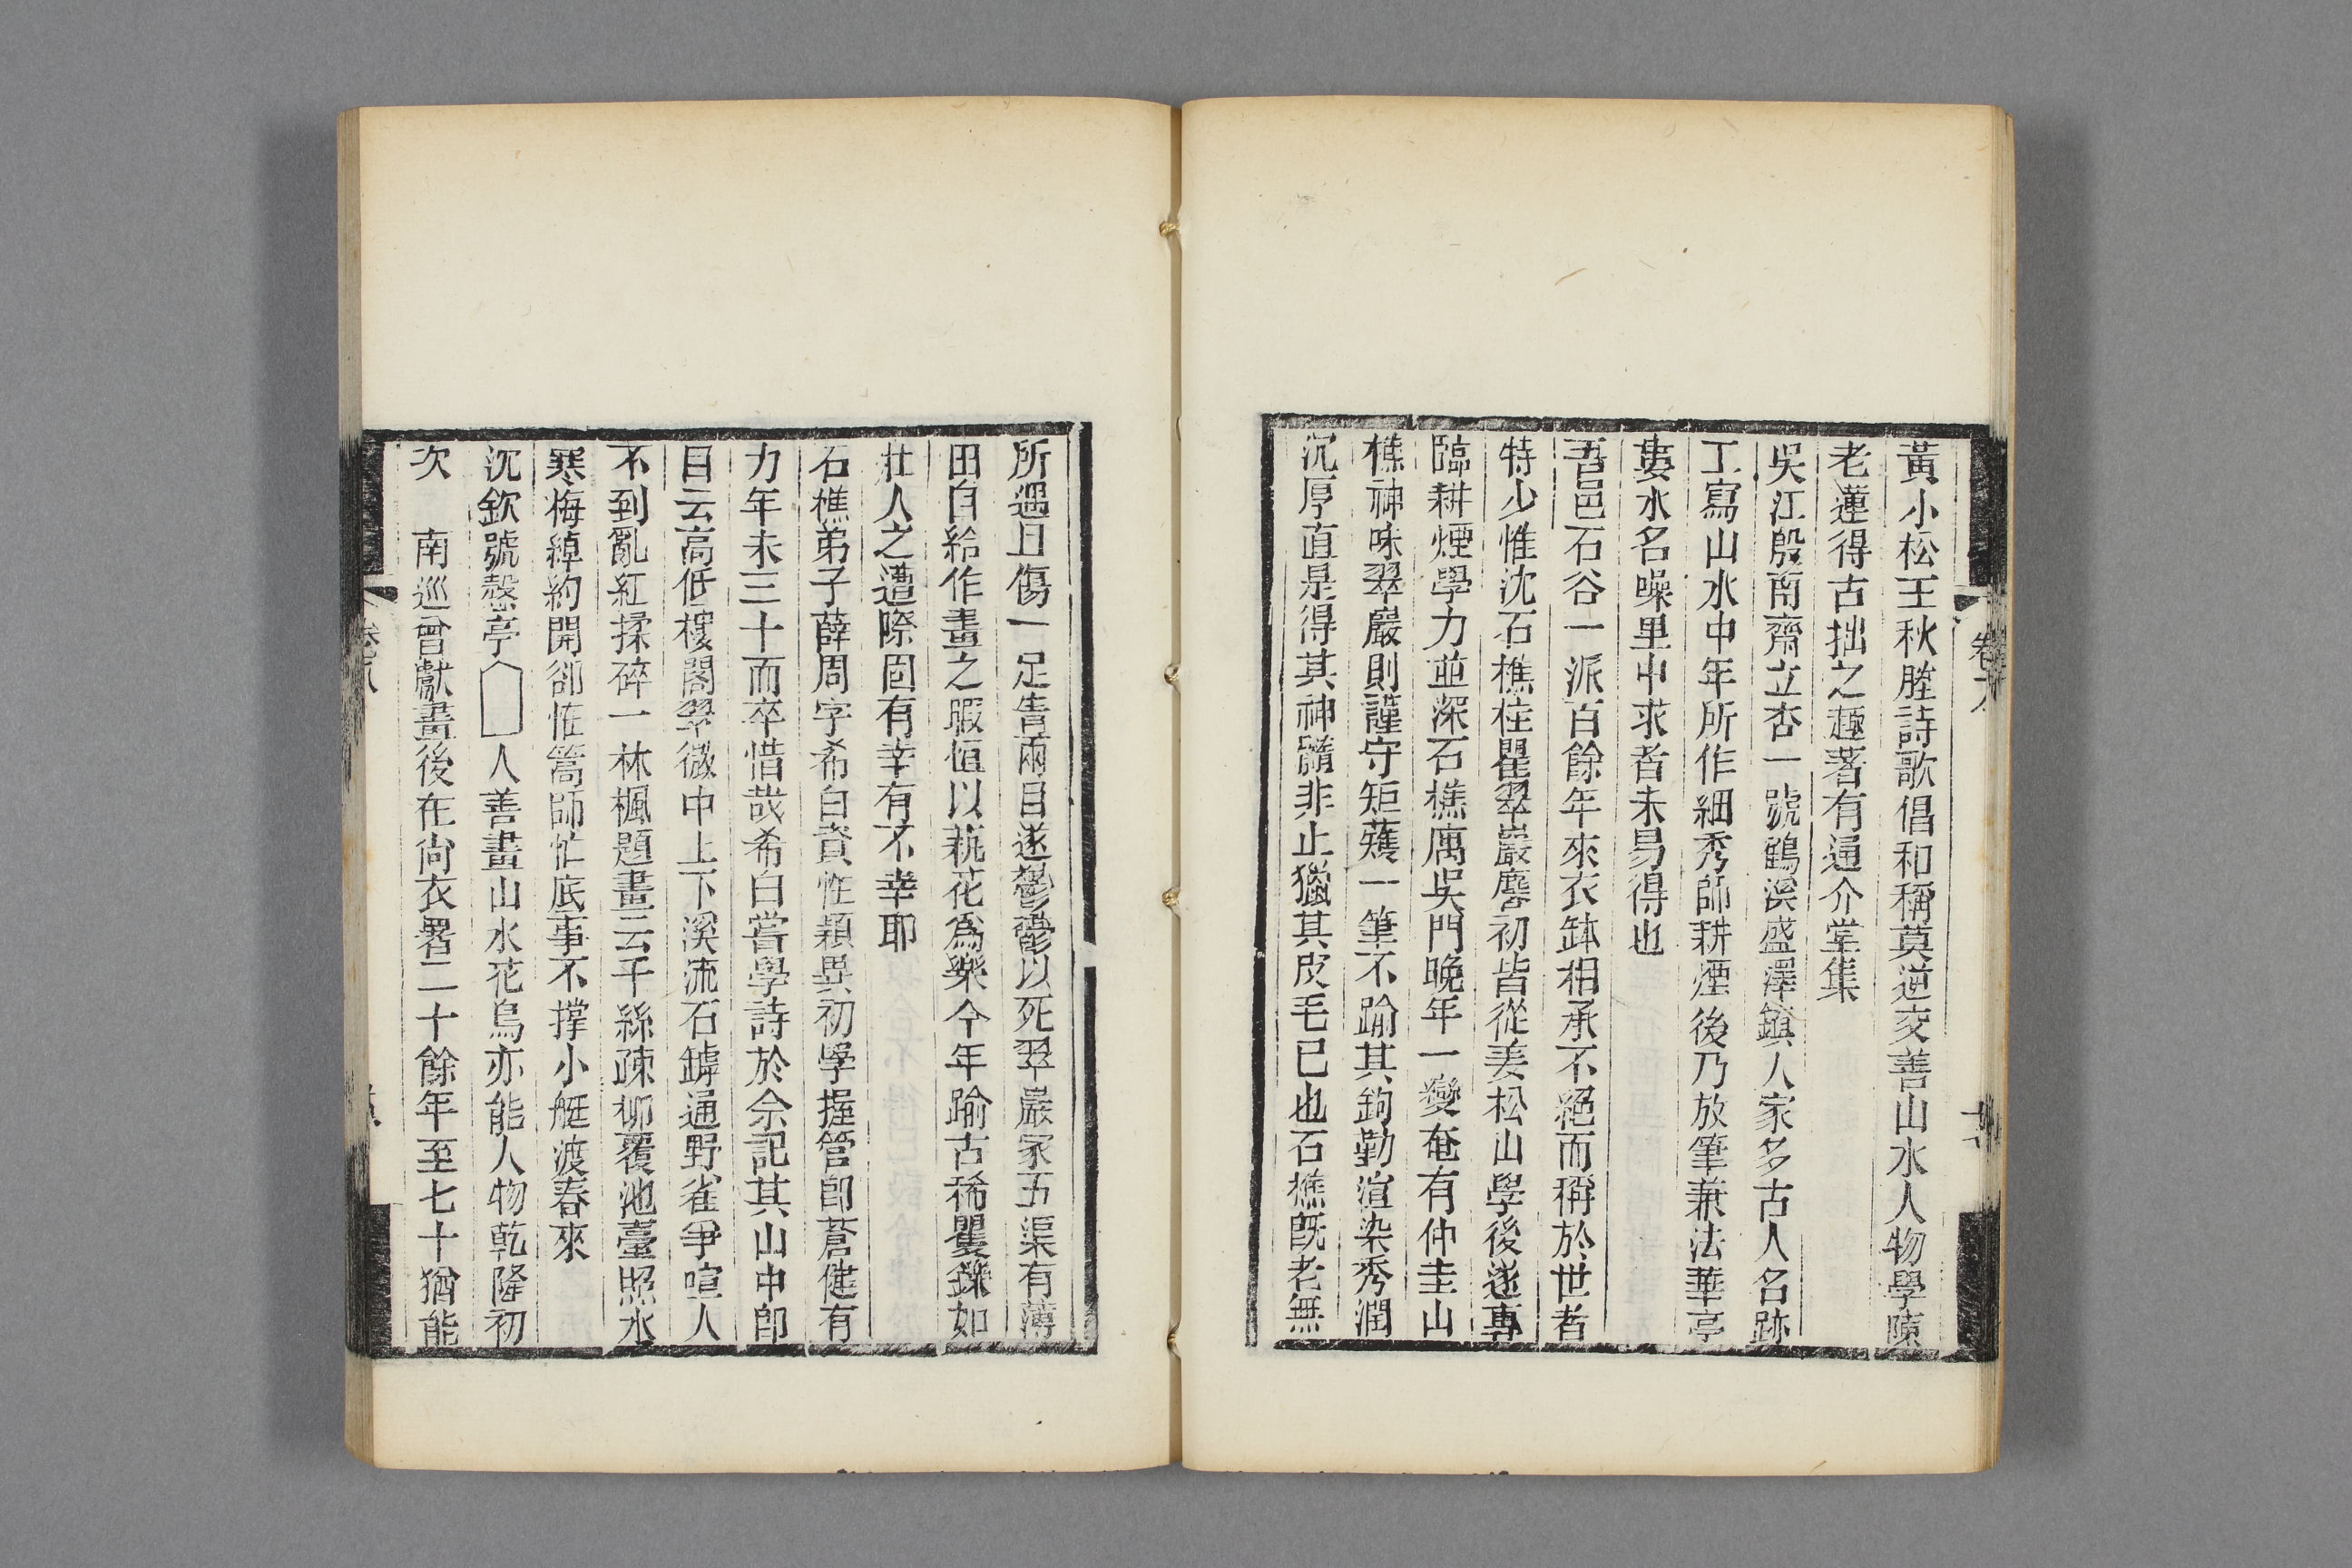 黃小松王秋塍詩歌倡和稱莫逆交善山水人物學陳
老蓮得古拙之趣著有通介堂集
吳江殷南齋立杏一號鶴溪盛澤鎮人家多古人名跡
工寫山水中年所作細秀師耕煙後乃放筆兼法華亭
婁水名噪里中求者未易得也
吾邑石谷一派百餘年來衣缽相承不絕而稱於世者
特少惟沈石樵柱瞿翠巖麐初皆從姜松山學後遂專
臨耕煙學力並深石樵寓吳門晚年一變奄有仲圭山
樵神味翠巖則謹守矩蒦一筆不踰其鉤勒渲染秀潤
沉厚直是得其神髓非止獵其皮毛已也石樵旣老無
所遇且傷一足眚兩目遂鬱鬱以死翠巖家五渠有薄
田自給作畫之暇恒以蓺花爲樂今年踰古稀矍鑠如
壯人之遭際固有幸有不幸耶
石樵弟子薛周字希白資性穎異初學握管卽蒼健有
力年未三十而卒惜哉希白嘗學詩於余記其山中卽
目云高低樓閣翠微中上下溪流石罅通野雀爭喧人
不到亂紅揉碎一林楓題畫云千絲疎柳覆池臺照水
寒梅綽約開卻怪篙師忙底事不撐小艇渡春來
沈欽號愨亭 人善畫山水花鳥亦能人物乾隆初
次 南巡曾獻畫後在尙衣署二十餘年至七十猶能